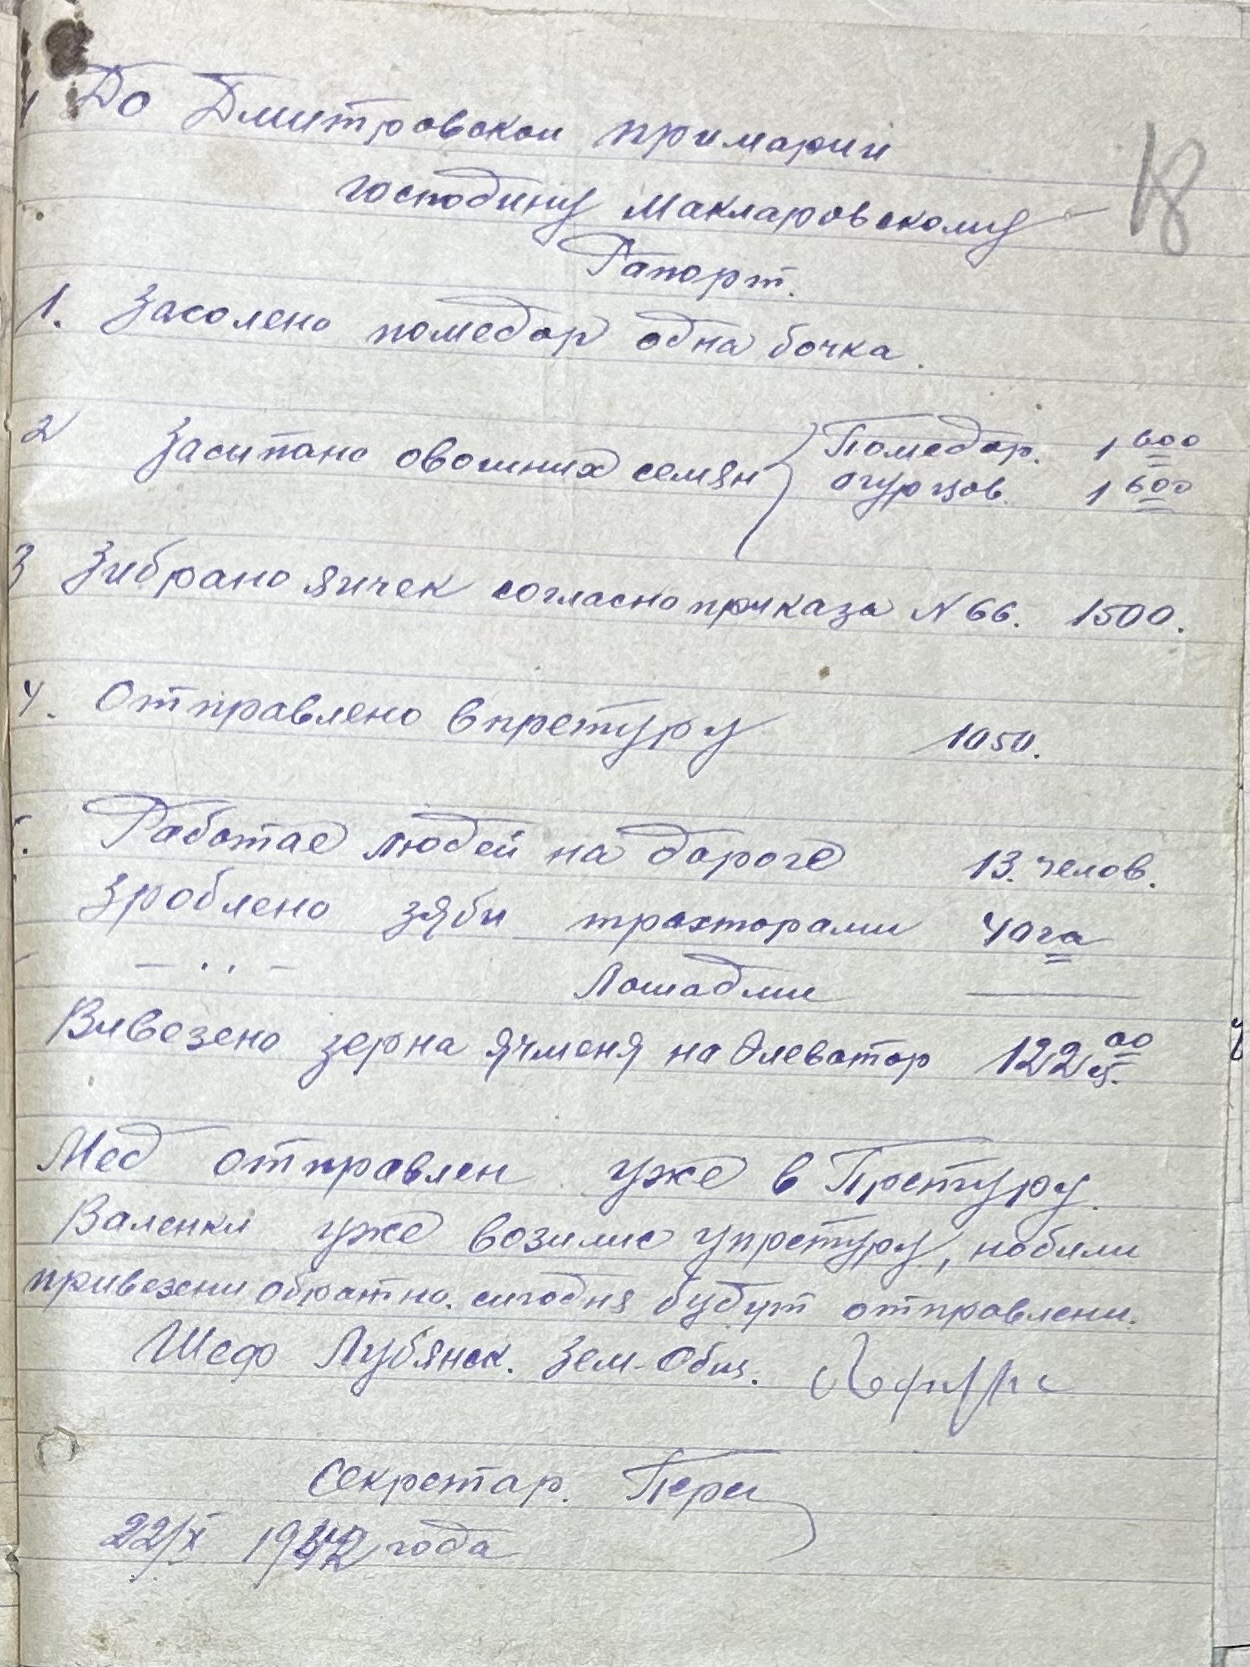 До Дмитровской примарии
18
господину Макларовскому
Рапорт.
1. Засолено помедор одна бочка.
2 Засипано овошних семян { Помедор. 1 600
огурцов. 1 600
3 Зибрано яичек согласно приказа N 66. 1500.
4. Отправлено в претуру 1050.
Работае людей на дороге 13. челов.
Зроблено зяби трахторами 40 га
— ·· — Лошадми ———
Вивезено зерна ячменя на Элеватор 122 ц. 00
Мед отправлен уже в Претуру.
Валенки уже возилис упретуру, но били
привезени обратно. сигодня будут отправлени.
Шеф Лубянск. Зем-Общ.
Секретар.
22/X 1942 года